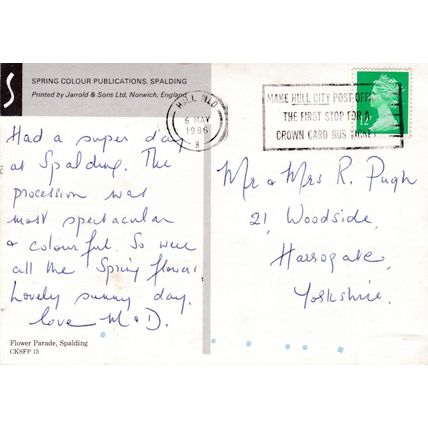 S
SPRING COLOUR PUBLICATIONS, SPALDING
Printed by Jarrold & Sons Ltd, Norwich, England
HULL
6 MAY
1986
8
MAKE HULL CITY POST OFFICE
THE FIRST STOP FOR A
CROWN CARD BUS TICKET
Had a super day
at Spalding. The
procession was
most spectacular
& colourful. So were
all the Spring flowers
Lovely sunny day.
love M & D.
Mr & Mrs R. Pugh
21, Woodside,
Harrogate,
Yorkshire.
Flower Parade, Spalding
CKSFP 15